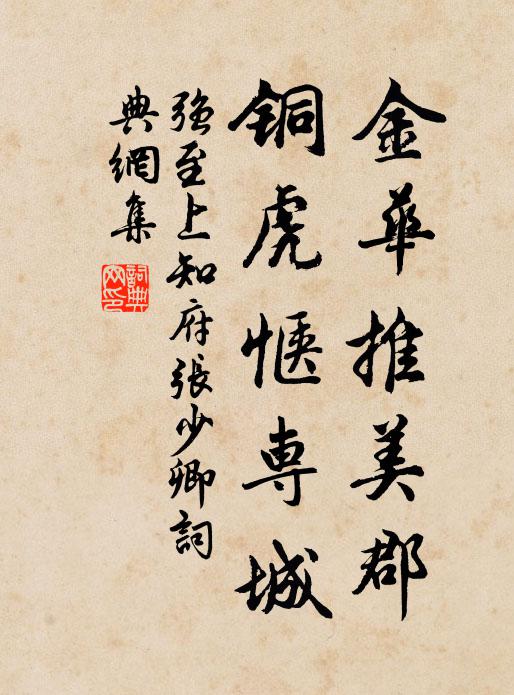 金華推美郡
銅虎愜專城
強至上知府張少卿詞
典網集
詞典網印